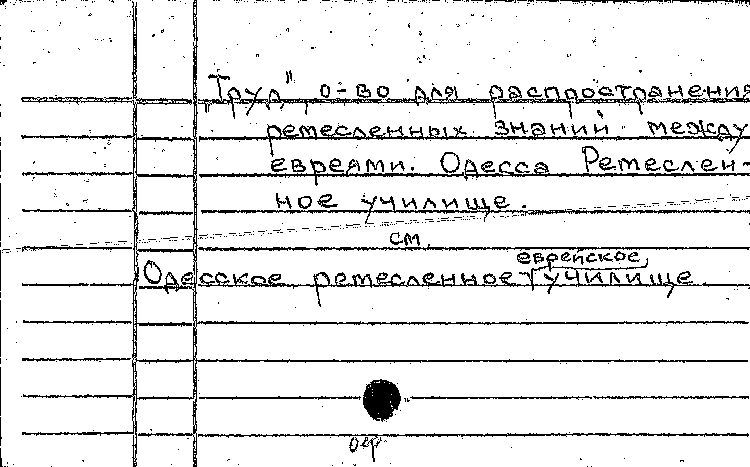 „Труд", о-во для распространения
ремесленных знаний между
евреями. Одесса Ремеслен-
ное училище.
см.
еврейское
Одесское ремесленное училище.